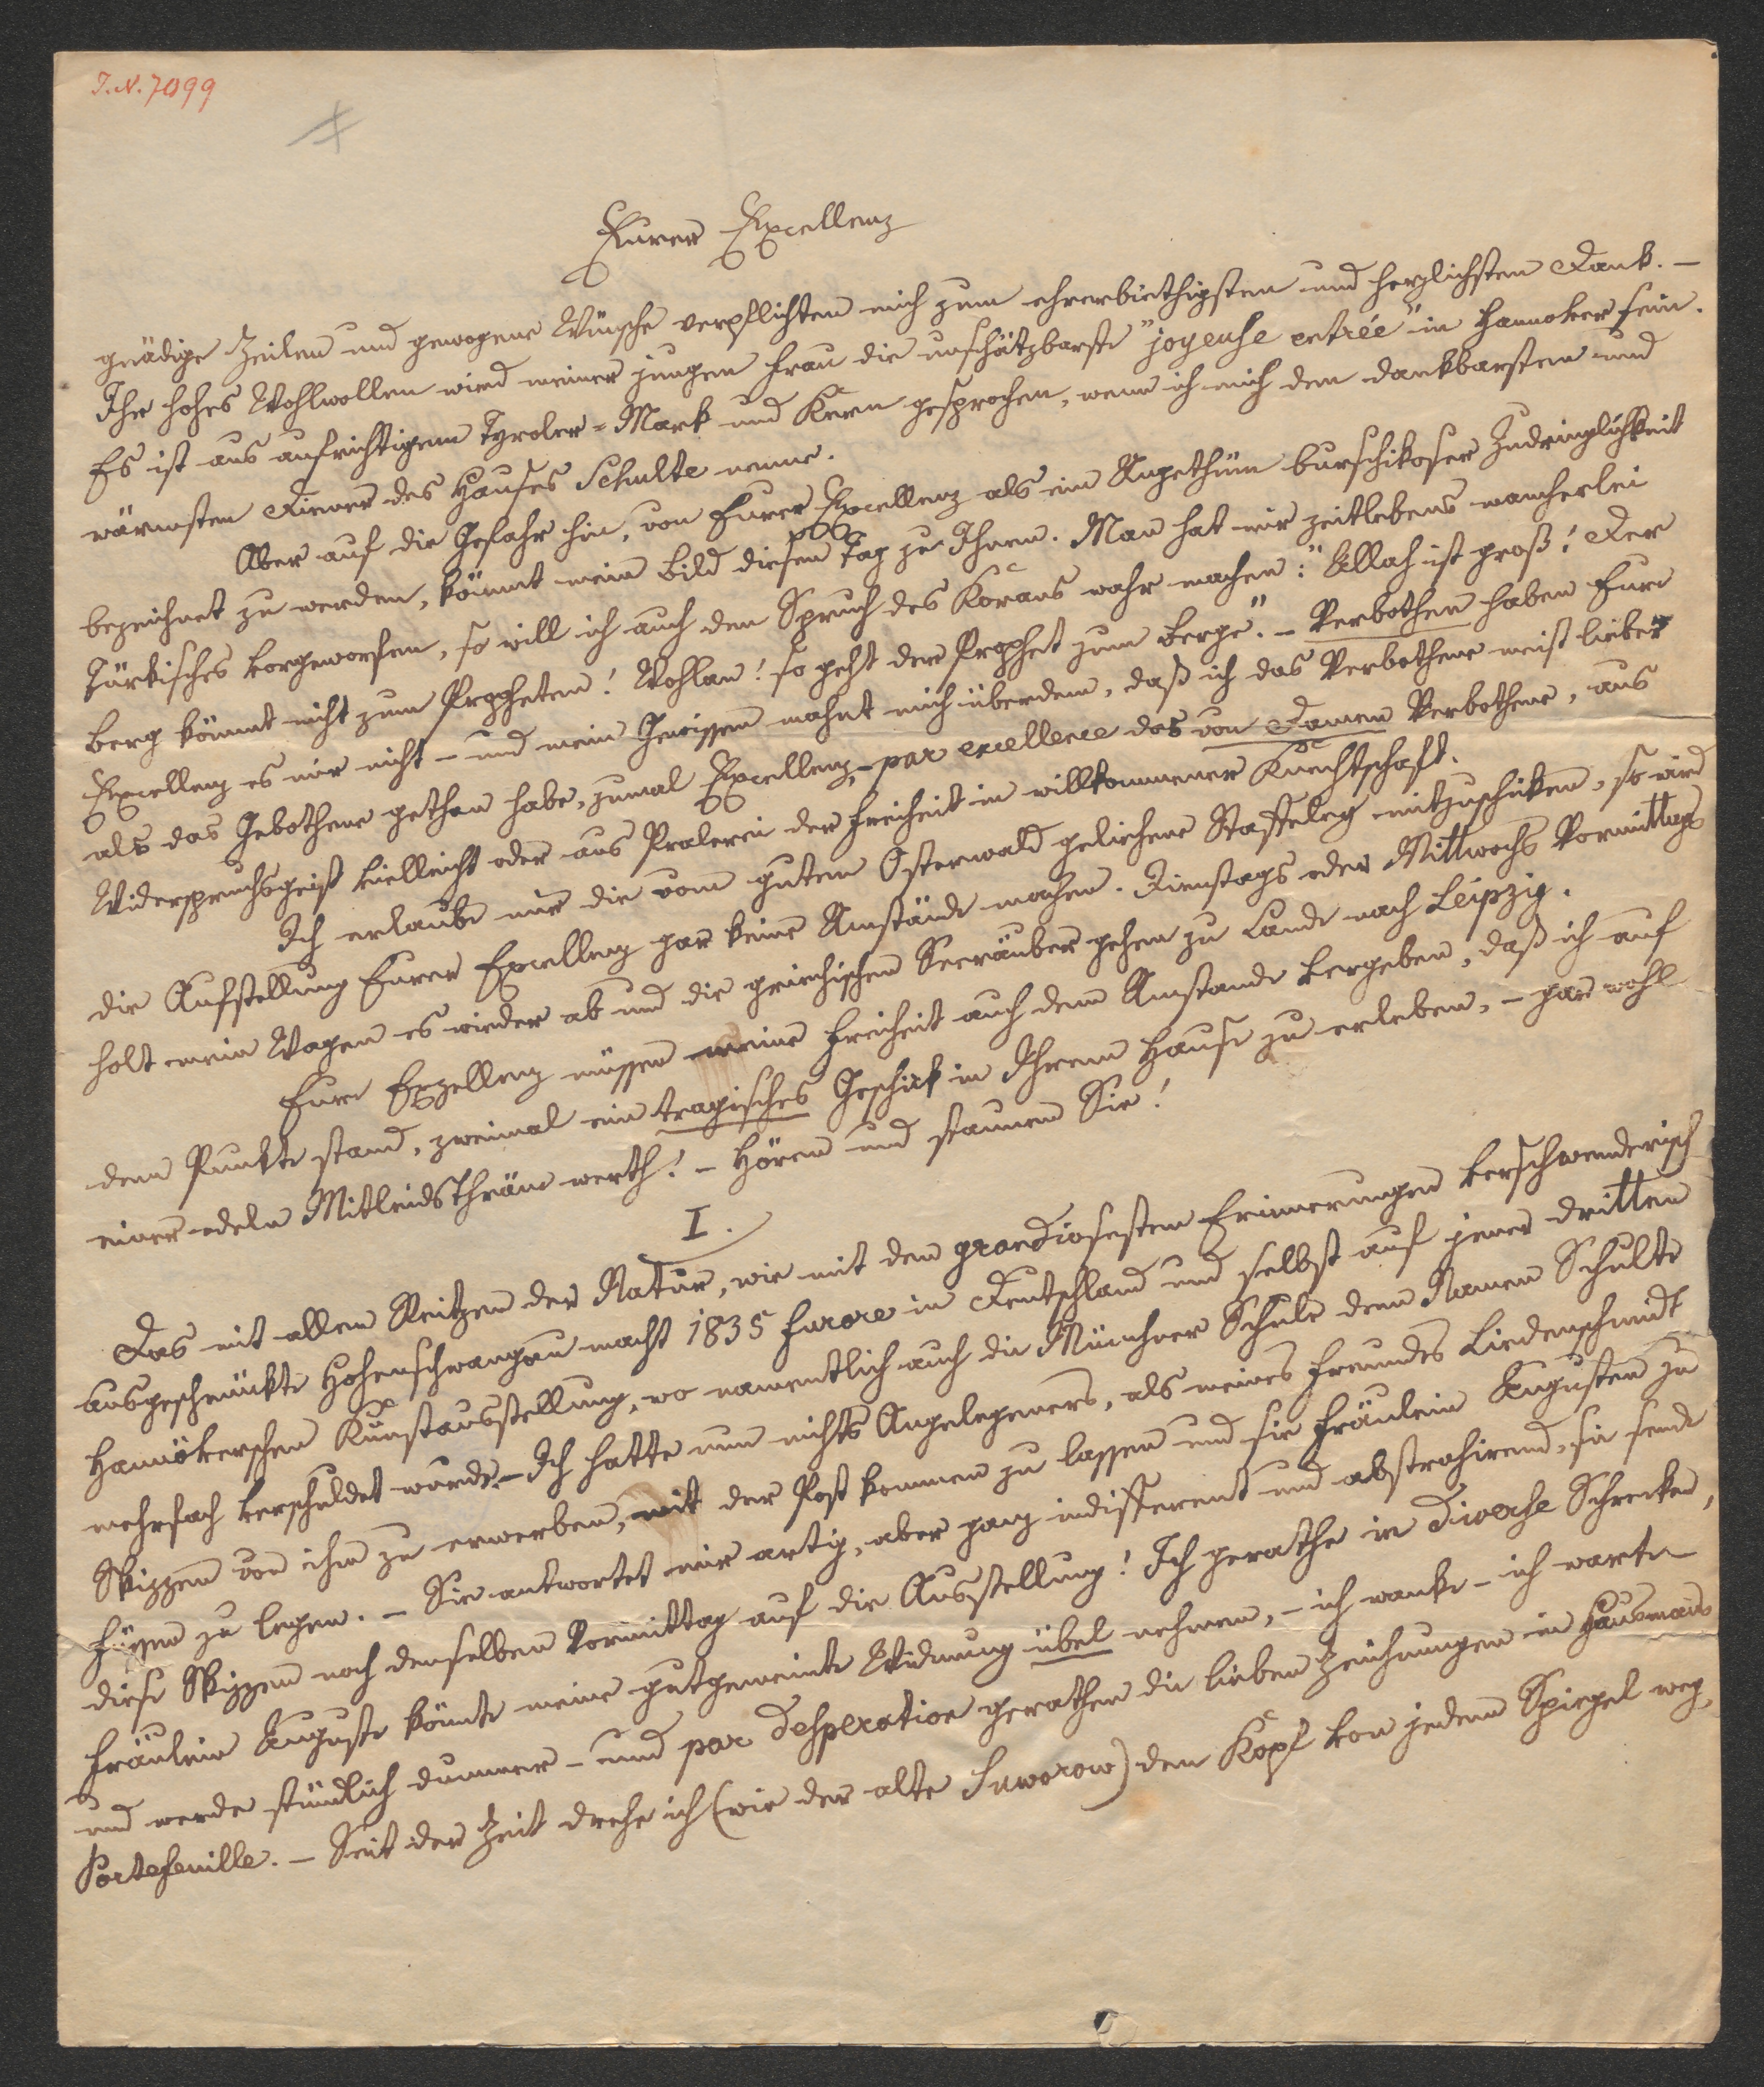 I.N. 7099
Eurer Excellenz
gnädige Zeilen und gewogene Wünsche verpflichten mich zum ehrerbiethigsten und herzlichsten Dank. –
Ihr hohes Wohlwollen wird meiner jungen Frau die unschätzbarste "joyeuse entrée" in Hannover sein.
Es ist aus aufrichtigem Tyroler-Mark und Kern gesprochen, wenn ich mich den dankbarsten und
wärmsten Diener des Hauses Schulte nenne.
Aber auf die Gefahr hin, von Eurer Excellenz als ein Ungethüm burschikoser Zudringlichkeit
bezeichnet zu werden, kömmt mein Bild diesen Tag zu Ihnen. Man hat mir zeitlebens mancherlei
Türkisches vorgeworfen, so will ich auch den Spruch des Korans wahr machen: "Allah ist groß! Der
Berg kömmt nicht zum Propheten! Wohlan! so geht der Prophet zum Berge". – Verbothen haben Eure
Excellenz es mir nicht – und mein Gewissen mahnt mich überdem, daß ich das Verbothene meist lieber
als das Gebothene gethan habe, zumal Excellenz, – par excellence das von Damen Verbothene, aus
Widerspruchsgeist vielleicht oder aus Pralerei der Freiheit in willkommener Knechtschaft.
Ich erlaube mir die vom guten Osterwald geliehene Staffeley mitzuschicken, so wird
die Aufstellung Eurer Excellenz gar keine Umstände machen. Dienstags oder Mittwochs Vormittags
holt mein Wagen es wieder ab und die griechischen Seeräuber gehen zu Lande nach Leipzig.
Eure Exzellenz müssen meine Freiheit auch dem Umstande vergeben, daß ich auf
dem Punkte stand, zweimal ein tragisches Geschick in Ihrem Hause zu erleben, – gar wohl
einer edeln Mitleidsthräne werth! – Hören und staunen Sie!
I.
Das mit allen Reitzen der Natur, wie mit den grandiosesten Erinnerungen verschwenderisch
ausgeschmückte Hohenschwangau macht 1835 Furore in Deutschland und selbst auf jener dritten
Hannöverschen Kunstausstellung, wo namentlich auch die Münchner Schule dem Namen Schulte
mehrfach verschuldet wurde. – Ich hatte nun nichts Angelegeners, als meines Freundes Liedenschmidt
Skizzen von ihm zu erwerben, mit der Post kommen zu lassen und sie Fräulein Augusten zu
Füssen zu legen. – Sie antwortet mir artig, aber ganz indifferent und abstrahirend, sie sende
diese Skizzen noch denselben Vormittag auf die Ausstellung! Ich gerathe in diverse Schrecken,
Fräulein Auguste könnte meine gutgemeinte Widmung übel nehmen, – ich wanke – ich warte
und werde stündlich dummer – und par desperation gerathen die lieben Zeichnungen in Hausmanns
Portefeuille. – Seit der Zeit drehe ich (wie der alte Suworow) den Kopf von jedem Spiegel weg,